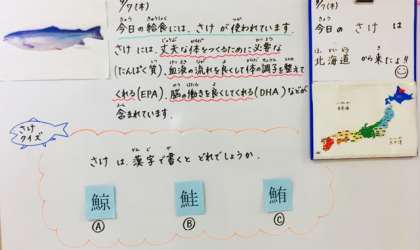 9/7(木)
今日の給食には、さけ が 使われています。
さけ には、丈夫な体をつくるために必要な
(たんぱく質)、血液の流れを良くして体の調子を整えて
くれる(EPA)、脳の働きを良くしてくれる(DHA)などが
含まれています。
9/7(木)
今日の さけ は
北海道 から来たよ!!
さけ
クイズ
さけ は 漢字で書くと どれでしょうか。
鯨
鮭
鮪
Ⓐ
Ⓑ
Ⓒ